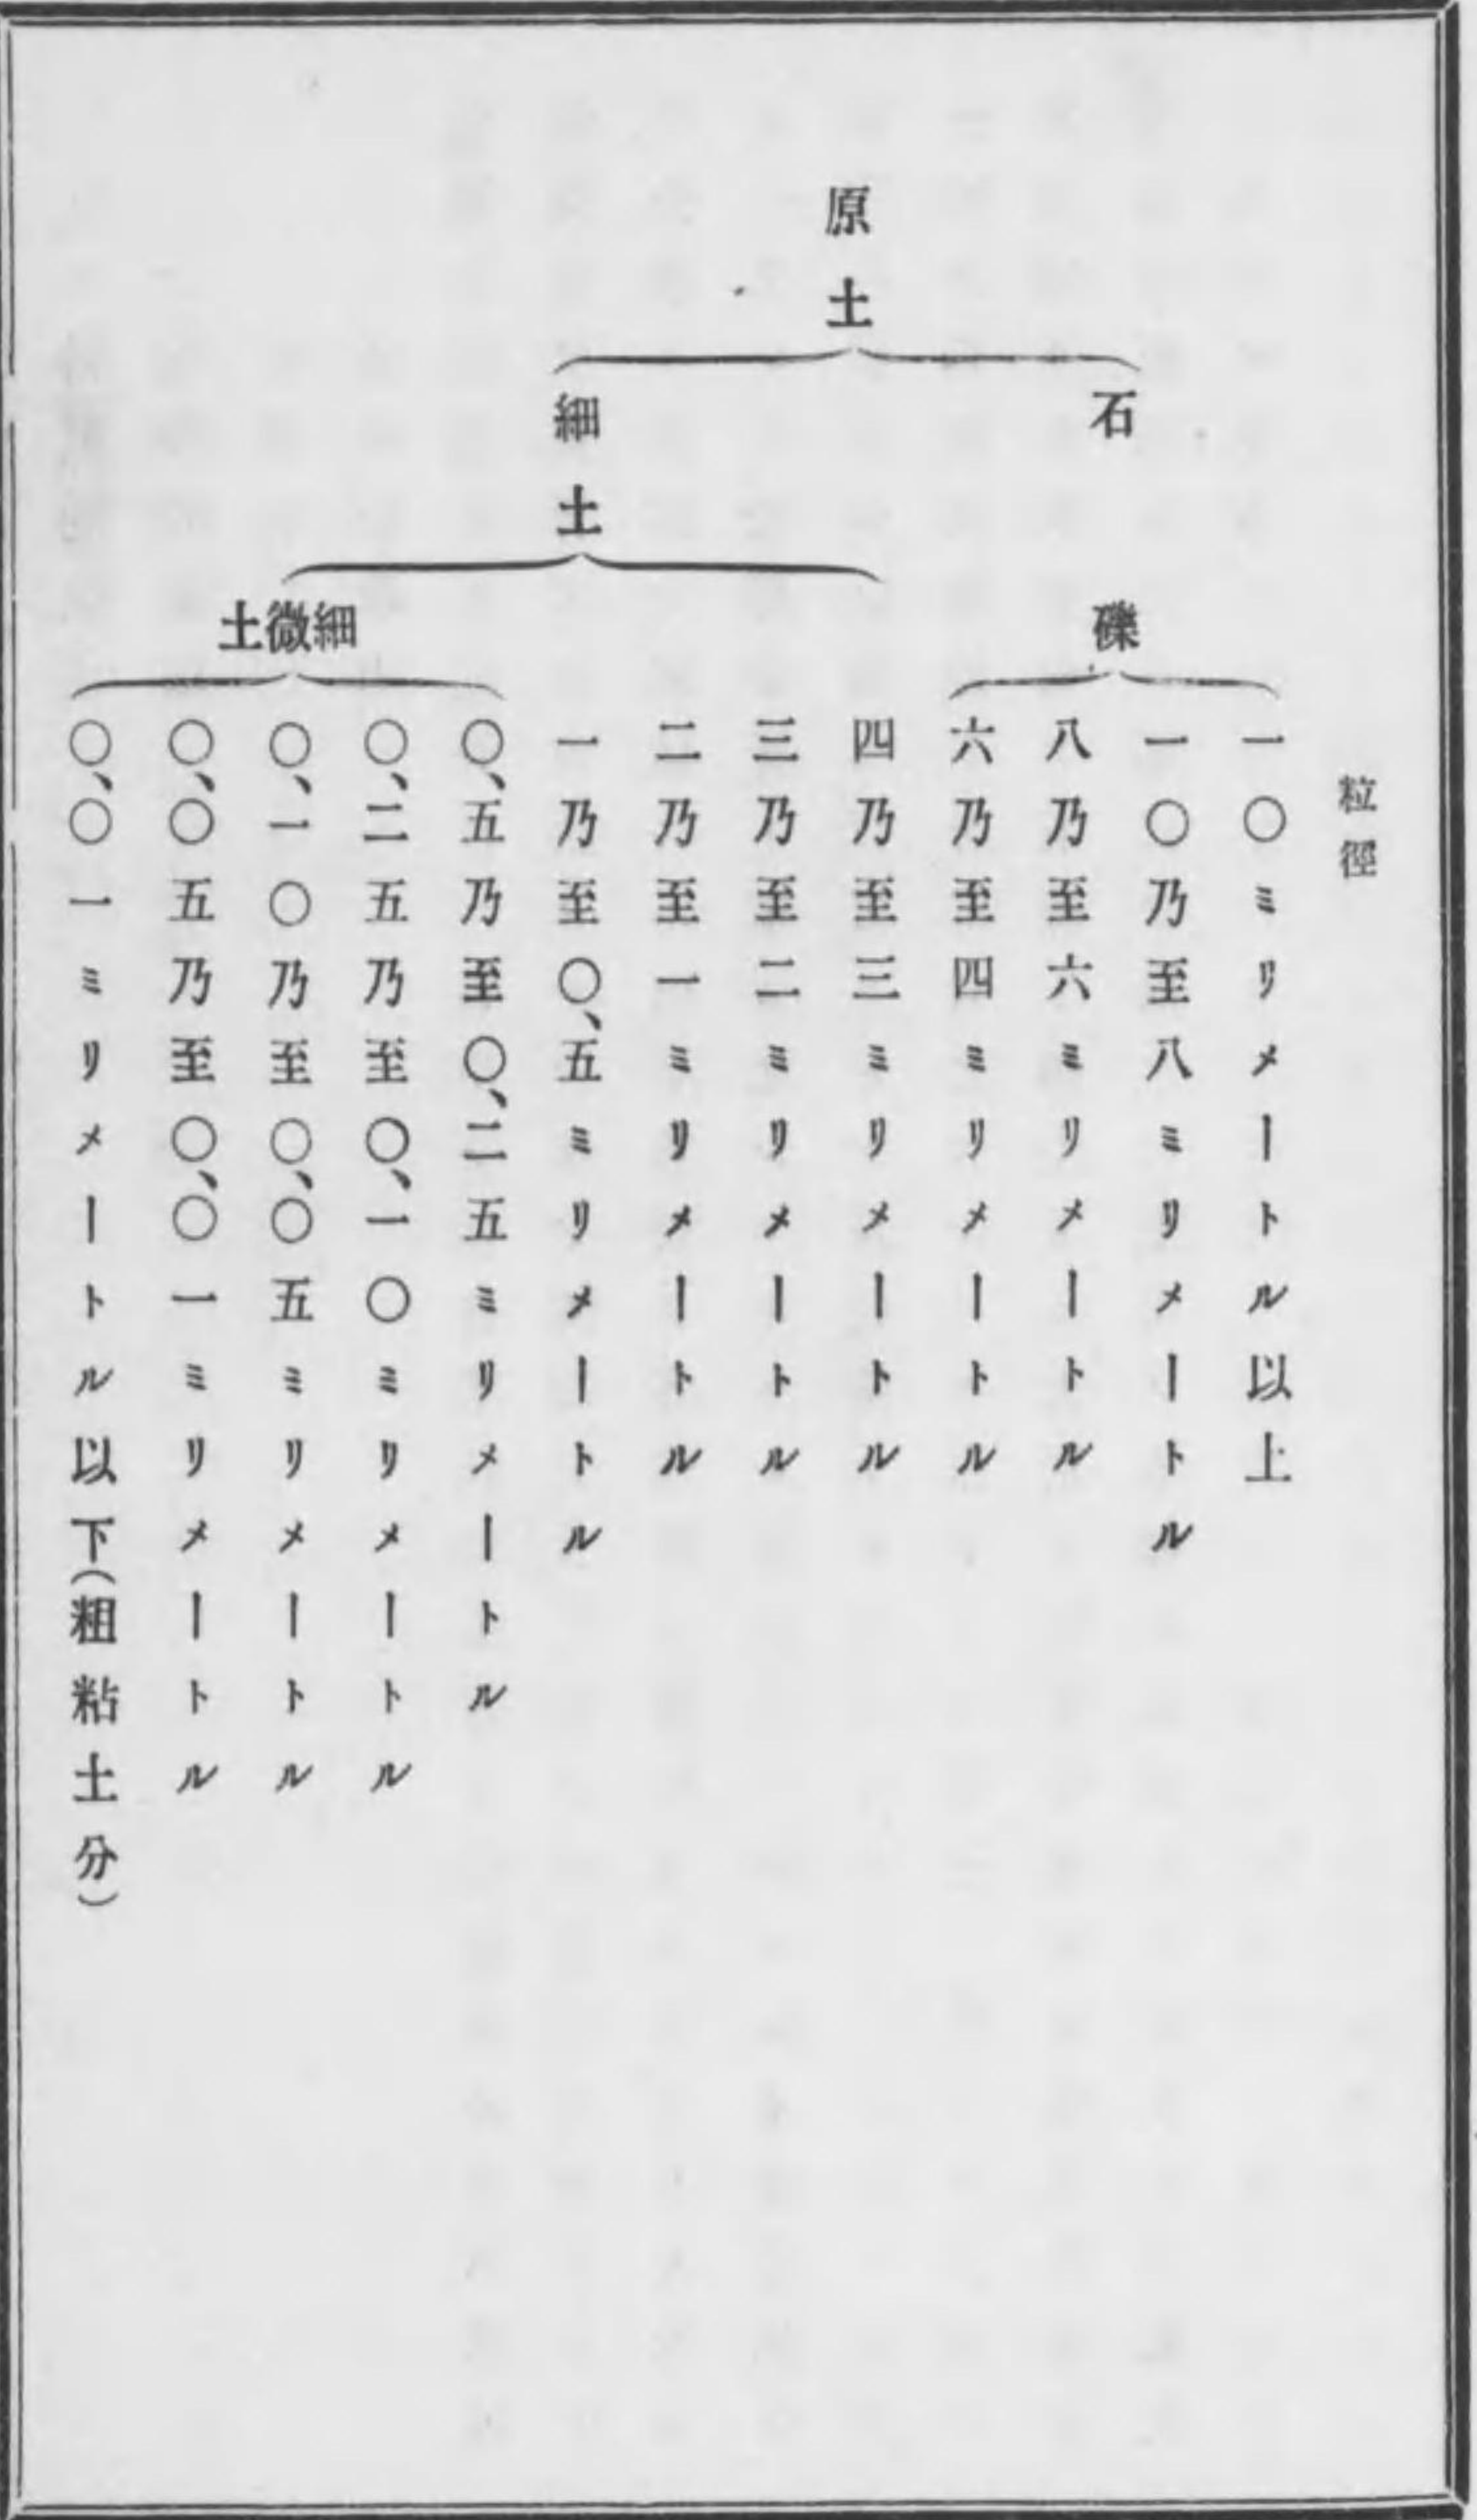 粒徑
原土
石
礫
一〇ミリメートル以上
一〇乃至八ミリメートル
八乃至六ミリメートル
六乃至四ミリメートル
細土
四乃至三ミリメートル
三乃至二ミリメートル
二乃至一ミリメートル
一乃至〇、五ミリメートル
土微細
〇、五乃至〇、二五ミリメートル
〇、二五乃至〇、一〇ミリメートル
〇、一〇乃至〇、〇五ミリメートル
〇、〇五乃至〇、〇一ミリメートル
〇、〇一ミリメートル以下(粗粘土分)